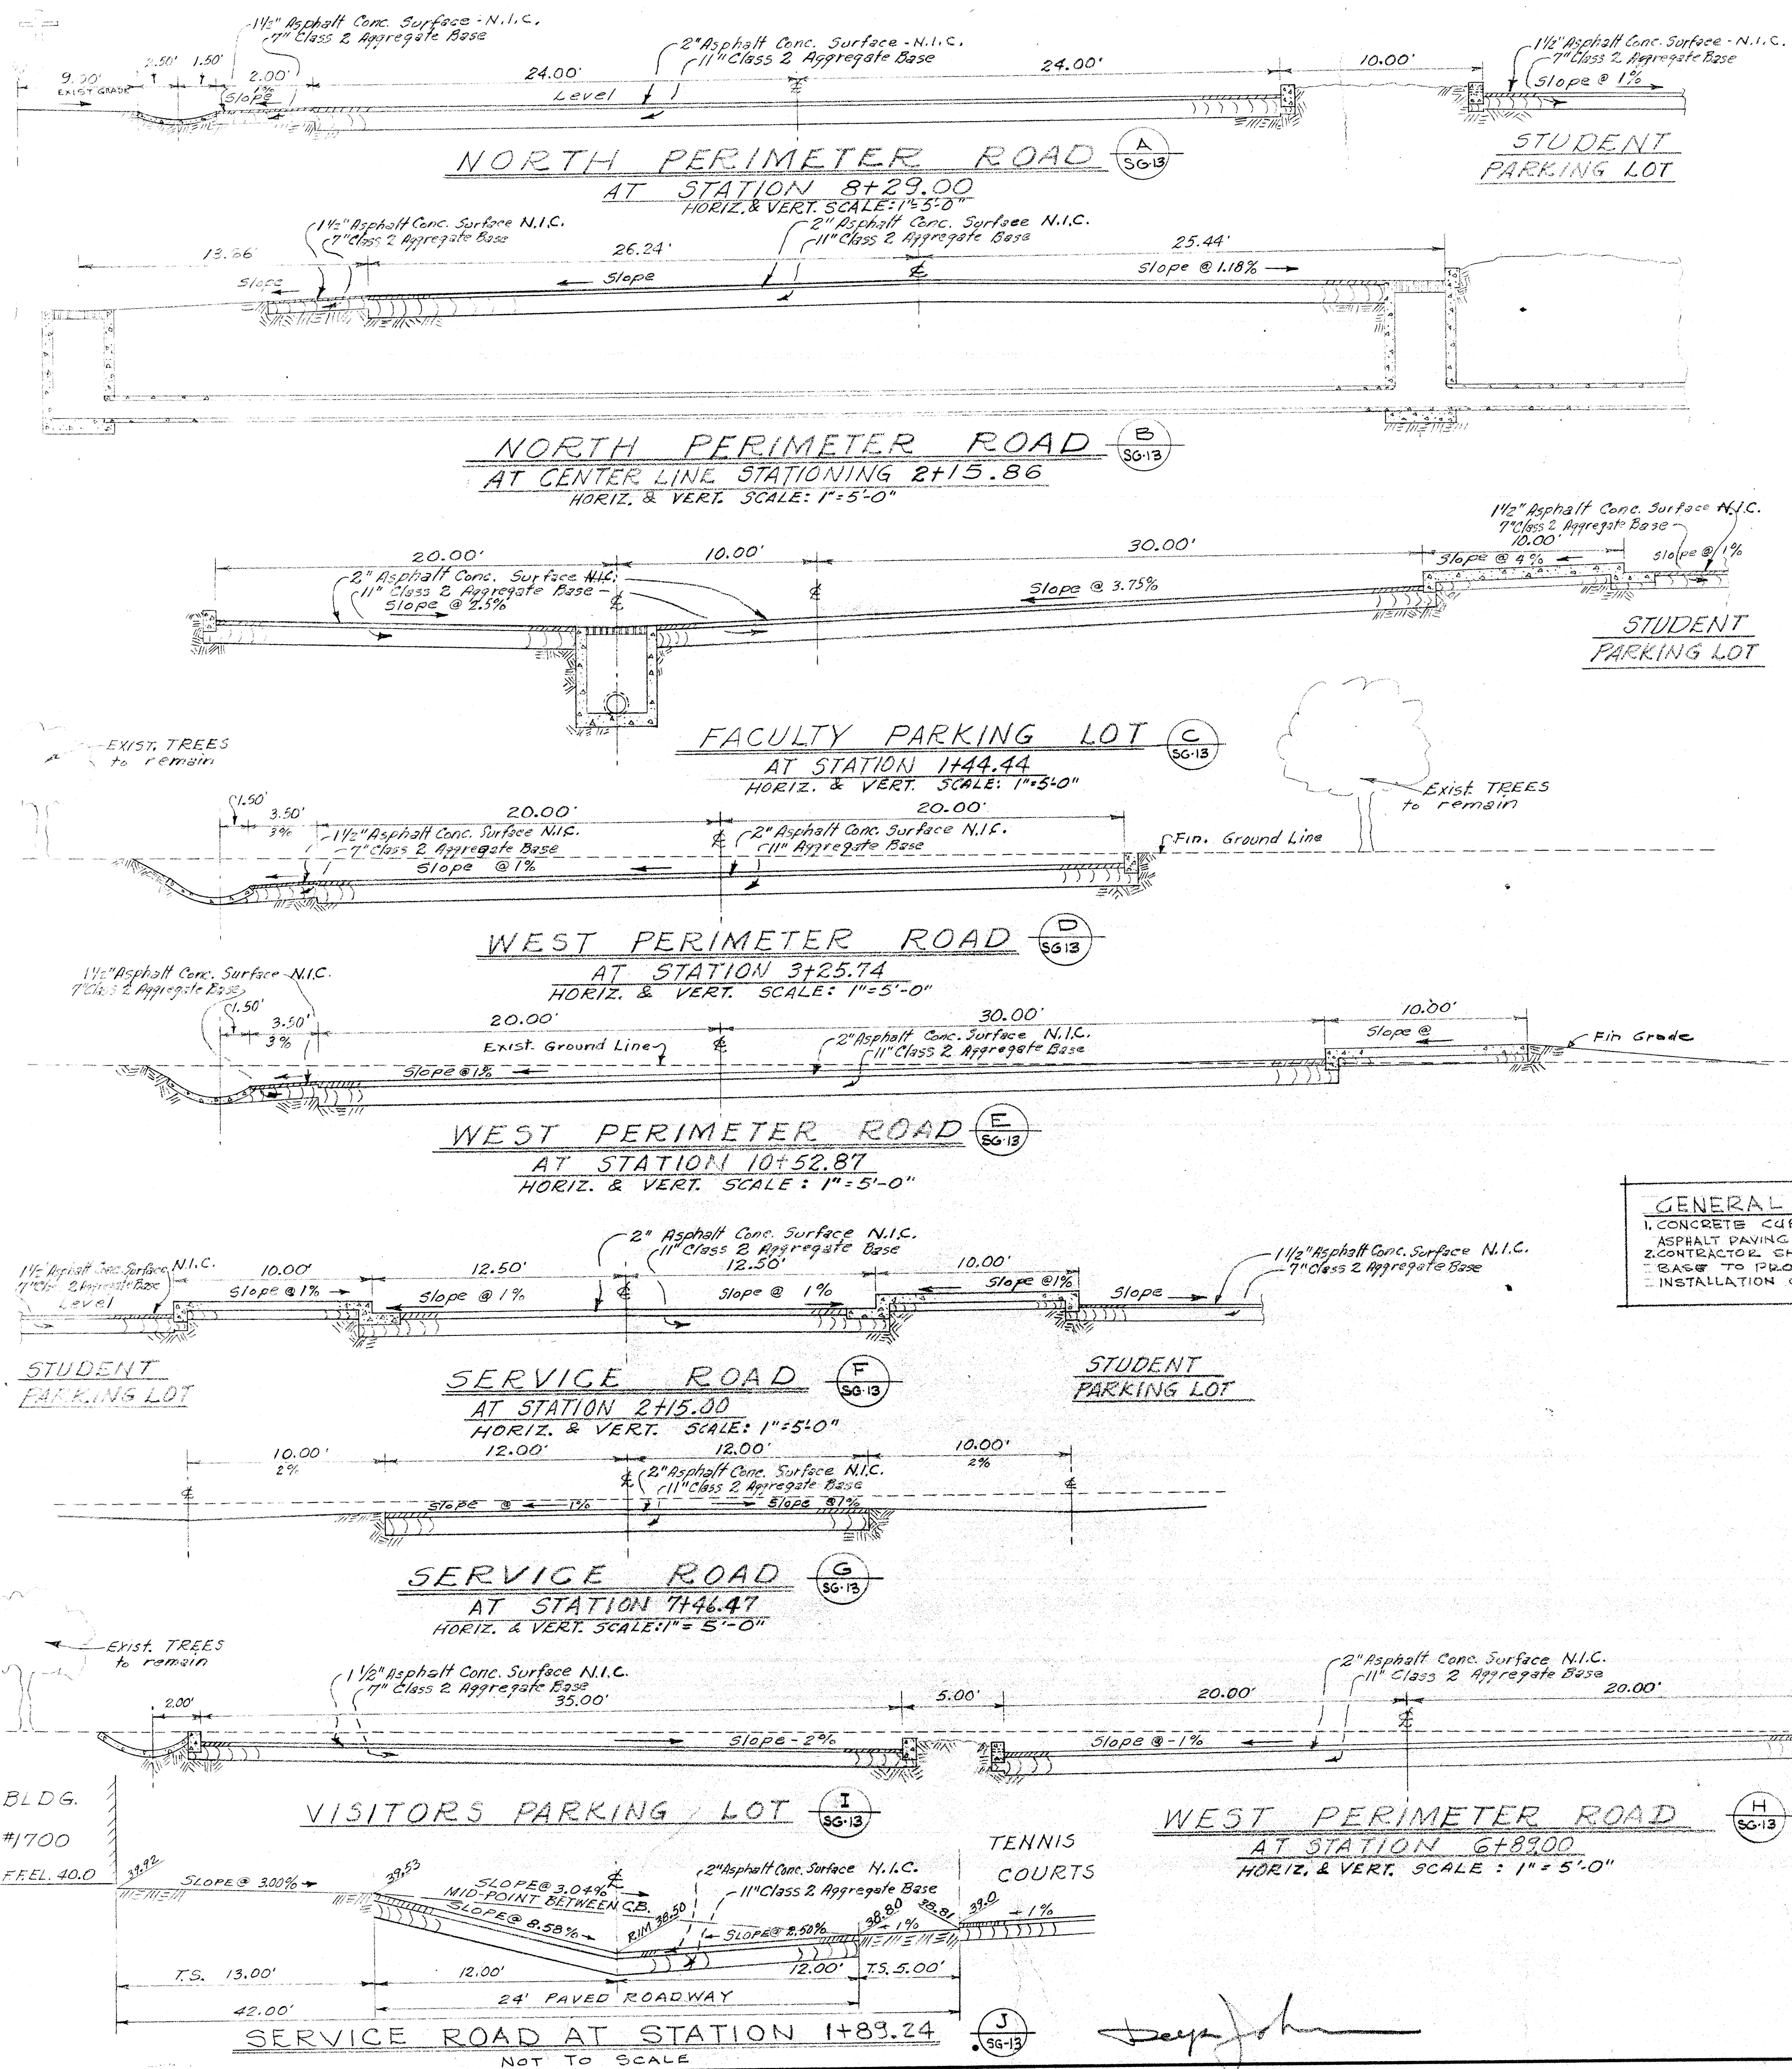 1½" Asphalt Conc. Surface - N.I.C.
7" Class 2 Aggregate Base
2" Asphalt Conc. Surface - N.I.C.
11" Class 2 Aggregate Base
1½" Asphalt Conc. Surface - N.I.C.
7" Class 2 Aggregate Base
2.50' 1.50' 2.00' 24.00' 24.00' 10.00'
EXIST GRADE
Slope 1%
Level
Slope @ 1%
STUDENT
PARKING LOT
NORTH PERIMETER ROAD A
SG-13
AT STATION 8+29.00
HORIZ. & VERT. SCALE: 1"=5'-0"
1½" Asphalt Conc. Surface N.I.C.
7" Class 2 Aggregate Base
2" Asphalt Conc. Surface N.I.C.
11" Class 2 Aggregate Base
26.24' 25.44'
Slope
Slope
Slope @ 1.18%
NORTH PERIMETER ROAD B
SG-13
AT CENTER LINE STATIONING 2+15.86
HORIZ. & VERT. SCALE: 1"=5'-0"
1½" Asphalt Conc. Surface N.I.C.
7" Class 2 Aggregate Base
20.00' 10.00' 30.00' 10.00'
2" Asphalt Conc. Surface N.I.C.
11" Class 2 Aggregate Base
Slope @ 2.5%
Slope @ 3.75%
Slope @ 4%
Slope @ 1%
STUDENT
PARKING LOT
FACULTY PARKING LOT C
SG-13
AT STATION 1+44.44
HORIZ. & VERT. SCALE: 1"=5'-0"
EXIST. TREES
to remain
Exist TREES
to remain
1.50' 3.50' 20.00' 20.00'
3%
1½" Asphalt Conc. Surface N.I.C.
7" Class 2 Aggregate Base
2" Asphalt Conc. Surface N.I.C.
11" Aggregate Base
Fin. Ground Line
Slope @ 1%
WEST PERIMETER ROAD D
SG13
AT STATION 3+25.74
HORIZ. & VERT. SCALE: 1"=5'-0"
1½" Asphalt Conc. Surface N.I.C.
7" Class 2 Aggregate Base
1.50' 3.50' 20.00' 30.00' 10.00'
3%
Exist. Ground Line
2" Asphalt Conc. Surface N.I.C.
11" Class 2 Aggregate Base
Slope @
Fin Grade
Slope @ 1%
WEST PERIMETER ROAD E
SG-13
AT STATION 10+52.87
HORIZ. & VERT. SCALE: 1"=5'-0"
GENERAL
1. CONCRETE CUR
ASPHALT PAVING
2. CONTRACTOR SH
BASE TO PRO
INSTALLATION
2" Asphalt Conc. Surface N.I.C.
11" Class 2 Aggregate Base
1½" Asphalt Conc. Surface N.I.C.
7" Class 2 Aggregate Base
1½" Asphalt Conc. Surface N.I.C.
7" Class 2 Aggregate Base
10.00' 12.50' 12.50' 10.00'
Level
Slope @ 1%
Slope @ 1%
Slope @ 1%
Slope @1%
Slope
STUDENT
PARKING LOT
STUDENT
PARKING LOT
SERVICE ROAD F
SG-13
AT STATION 2+15.00
HORIZ. & VERT. SCALE: 1"=5'-0"
10.00' 12.00' 12.00' 10.00'
2% 2%
2" Asphalt Conc. Surface N.I.C.
11" Class 2 Aggregate Base
Slope @ 1%
Slope @1%
SERVICE ROAD G
SG-13
AT STATION 7+46.47
HORIZ. & VERT. SCALE: 1"= 5'-0"
Exist. TREES
to remain
1 1/2" Asphalt Conc. Surface N.I.C.
7" Class 2 Aggregate Base
2" Asphalt Conc. Surface N.I.C.
11" Class 2 Aggregate Base
2.00' 35.00' 5.00' 20.00' 20.00'
Slope - 2%
Slope @ - 1%
VISITORS PARKING LOT I
SG-13
WEST PERIMETER ROAD H
SG-13
AT STATION 6+89.00
HORIZ. & VERT. SCALE : 1" = 5'-0"
BLDG.
#1700
F.F.EL. 40.0
39.92
SLOPE @ 3.00%
39.53
SLOPE @ 3.04%
MID-POINT BETWEEN C.B.
SLOPE @ 8.58%
RIM 38.50
2" Asphalt Conc. Surface N.I.C.
11" Class 2 Aggregate Base
SLOPE @ 2.50%
38.80 38.81 39.0
1% 1%
TENNIS
COURTS
T.S. 13.00' 12.00' 12.00' T.S. 5.00'
24' PAVED ROADWAY
42.00'
SERVICE ROAD AT STATION 1+89.24 J
SG-13
NOT TO SCALE